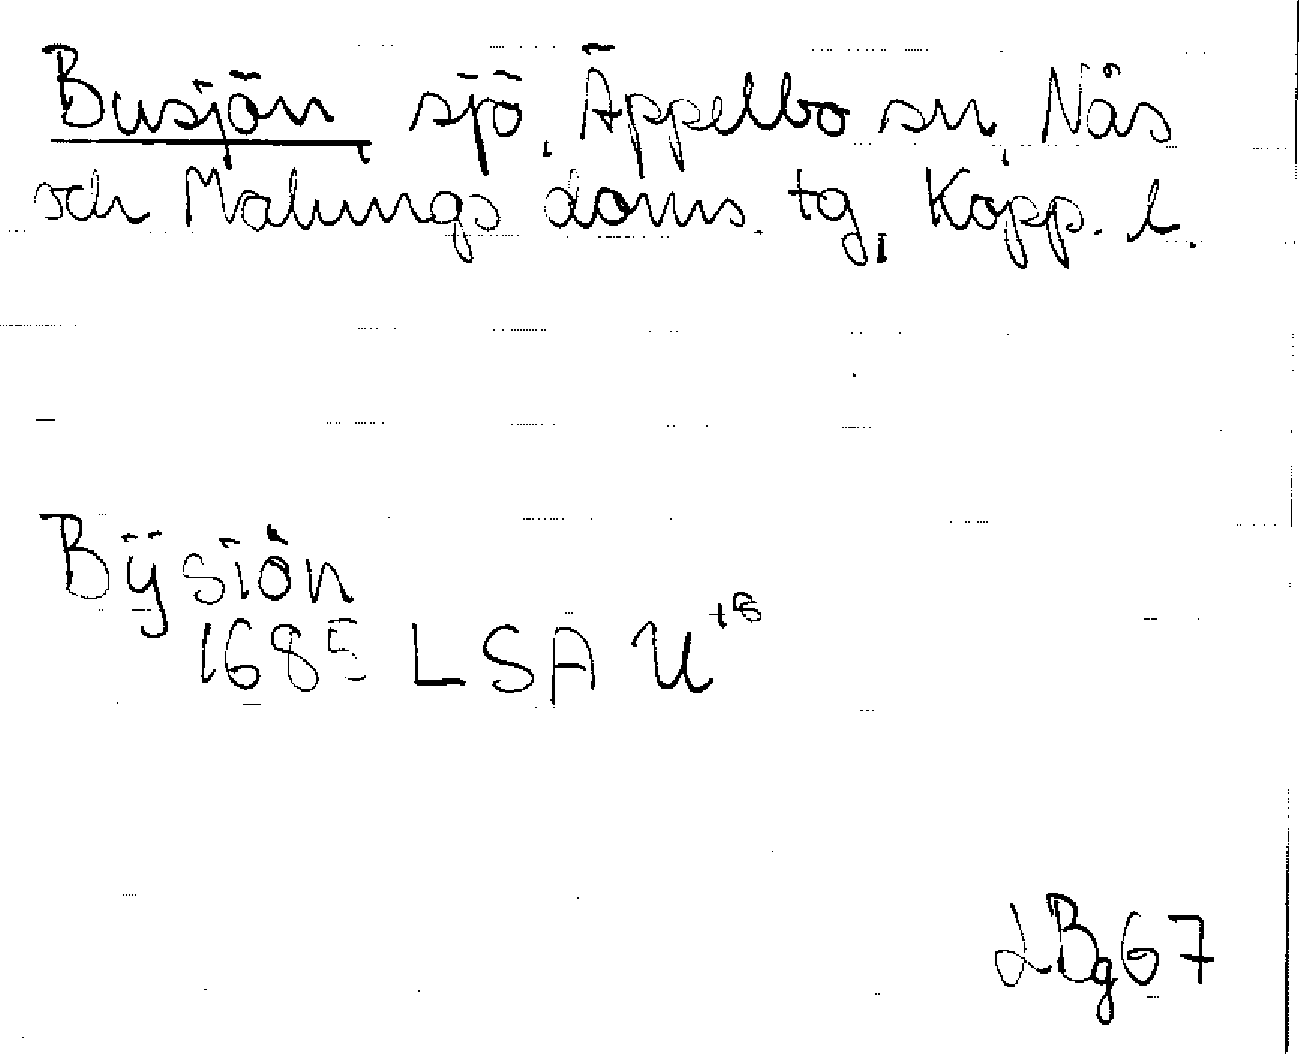 Busjön, sjö, Äppelbo sn, Nås
och Malungs doms. tg, Kopp. l.
Bÿsiön
1685 LSA U 18
LBg67